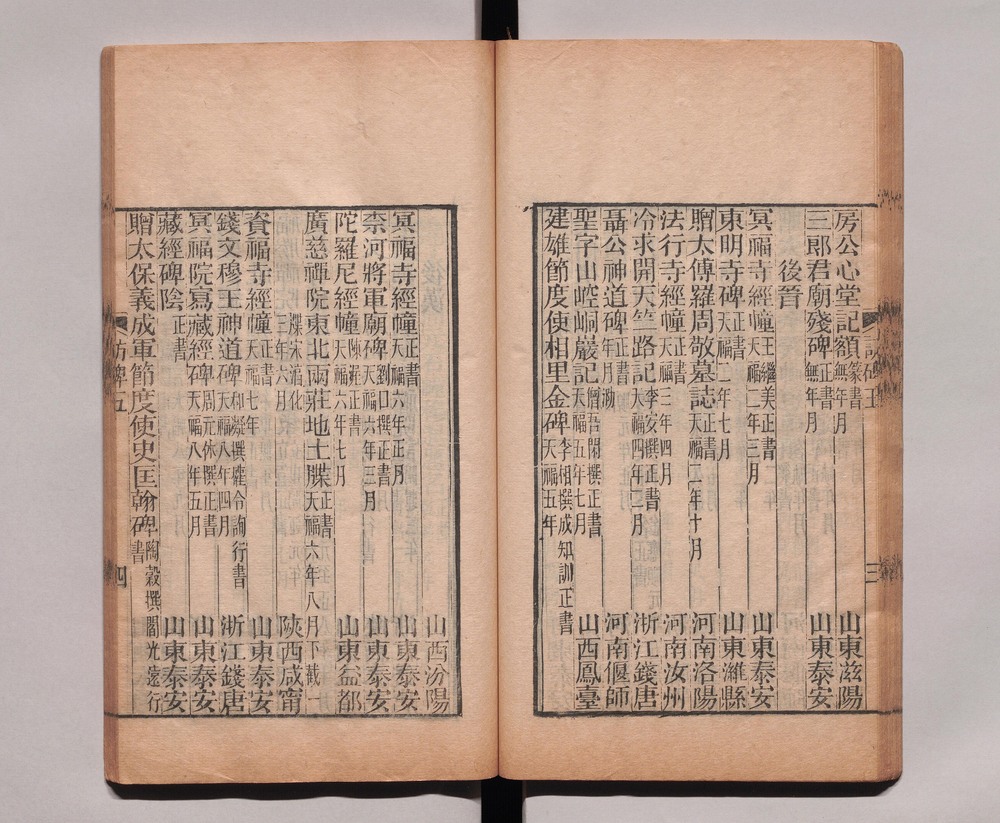 房公心堂記額篆書無年月 山東滋陽
三郎君廟殘碑正書無年月 山東泰安
後晉
冥福寺經幢王繼美正書天福二年三月 山東泰安
東明寺碑正書天福二年七月 山東濰縣
贈太傅羅周敬墓誌正書天福二年十月 河南洛陽
法行寺經幢正書天福三年四月 河南汝州
冷求開天竺路記李安撰正書天福四年二月 浙江錢唐
聶公神道碑正書年月泐 河南偃師
聖字山崆峒巖記僧悟閑撰正書天福五年七月 山西鳳臺
建雄節度使相里金碑李相撰成知訓正書天福五年
山西汾陽
冥福寺經幢正書天福六年正月 山東泰安
柰河將軍廟碑劉口撰正書天福六年三月 山東泰安
陀羅尼經幢陳渥正書天福六年七月 山東益都
廣慈禪院東北兩莊地土牒正書天福六年八月下截一
牒宋淳化三年六月 陝西咸甯
資福寺經幢正書天福七年 山東泰安
錢文穆王神道碑和凝撰權令詢行書天福八年四月 浙江錢唐
冥福院寫藏經碑周元休撰正書天福八年五月 山東泰安
藏經碑陰正書 山東泰安
贈太保義成軍節度使史匡翰碑陶穀撰閻光遠行書
訪碑五 四